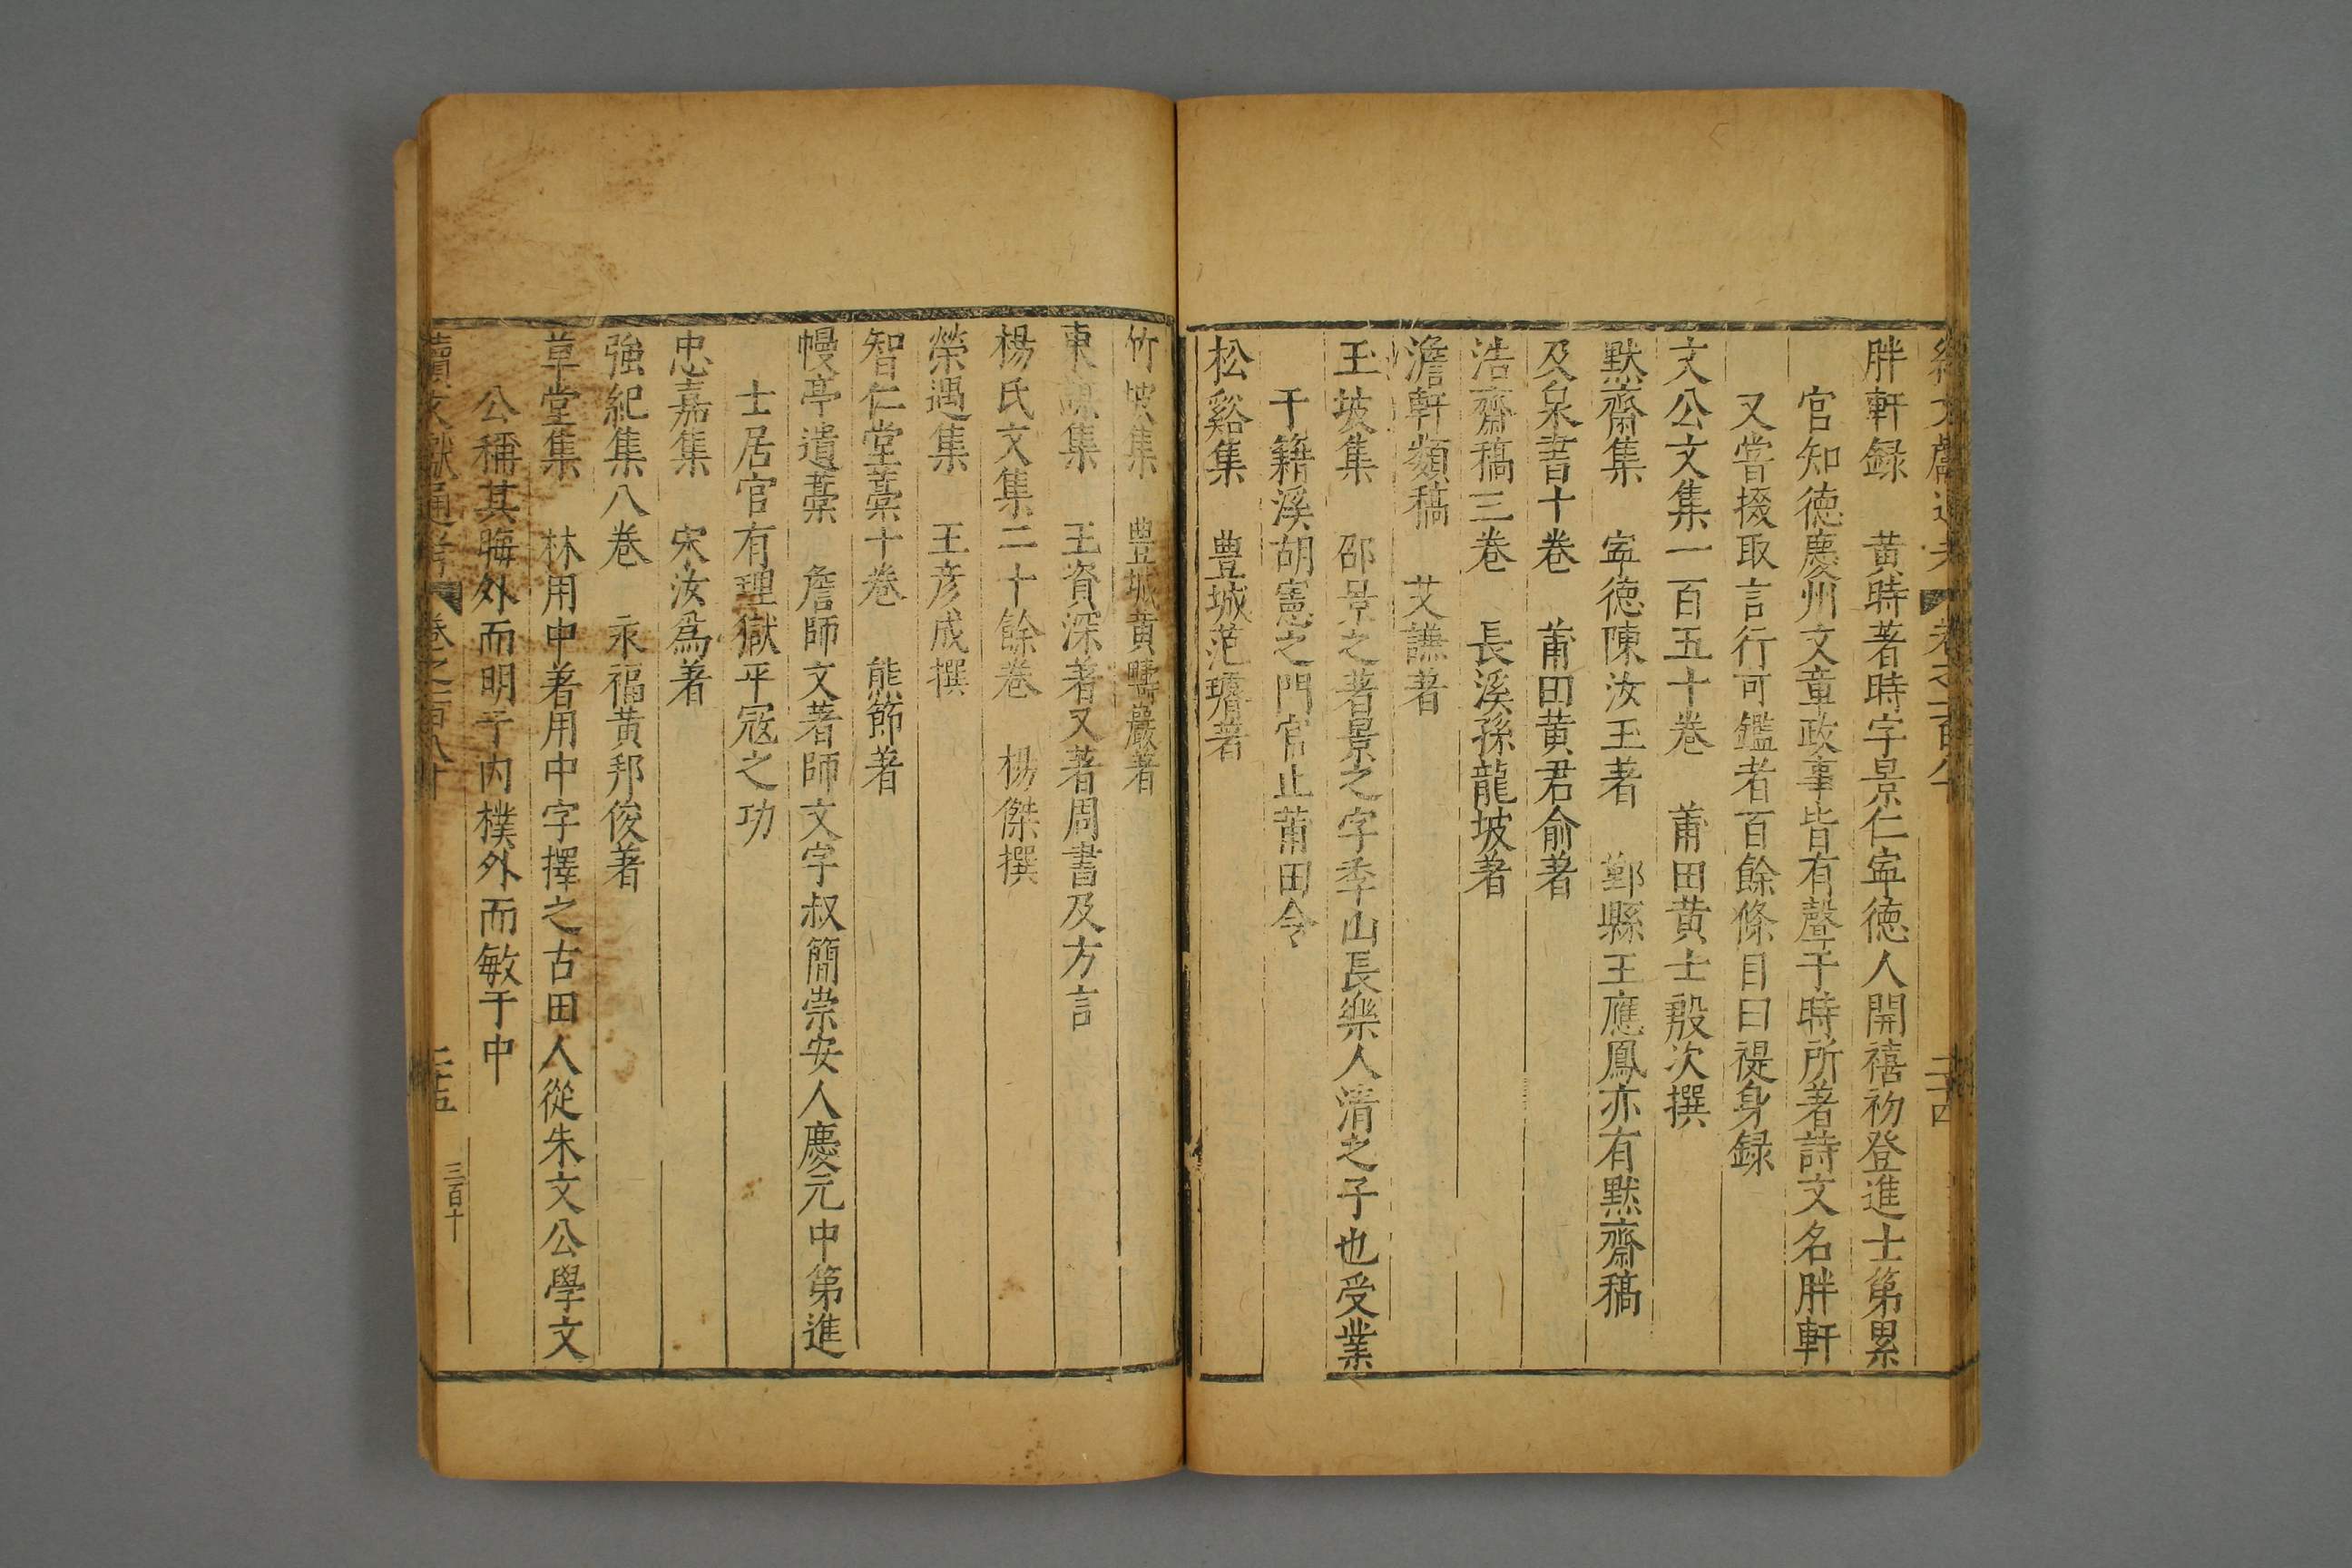 胖軒録　黃時著時字景仁寜德人開禧初登進士第累
官知德慶州文章政事皆有聲于時所著詩文名胖軒
又嘗掇取言行可鑑者百餘條目曰禔身録
文公文集一百五十卷　莆田黃士毅次撰
默齋集　寜德陳汝玉著　鄞縣王應鳳亦有默齋稿
及泉書十卷　莆田黃君俞著
浩齋稿三卷　長溪孫龍坡著
澹軒類稿　艾謙著
玉坡集　邵景之著景之字季山長樂人清之子也受業
于籍溪胡憲之門官止莆田令
松谿集　豊城范璿著
竹坡集　豊城黃疇巖著
東　集　王資深著又著周書及方言
楊氏文集二十餘卷　楊傑撰
榮遇集　王彥成撰
智仁堂藁十卷　熊節著
幔亭遺藁　詹師文著師文字叔簡崇安人慶元中第進
士居官有理獄平寇之功
忠嘉集　宋汝爲著
強紀集八卷　永福黃邦俊著
草堂集　林用中著用中字擇之古田人從朱文公學文
公稱其晦外而明于內樸外而敏于中
續文獻通考　卷之一百八十　二十五　三百十